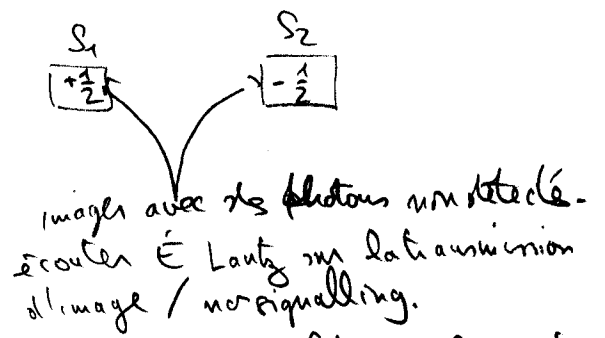 S1 S2
+1/2 -1/2
images avec des photons non détecté.
écouter É Lantz sur la transmission
d'image / no signalling.